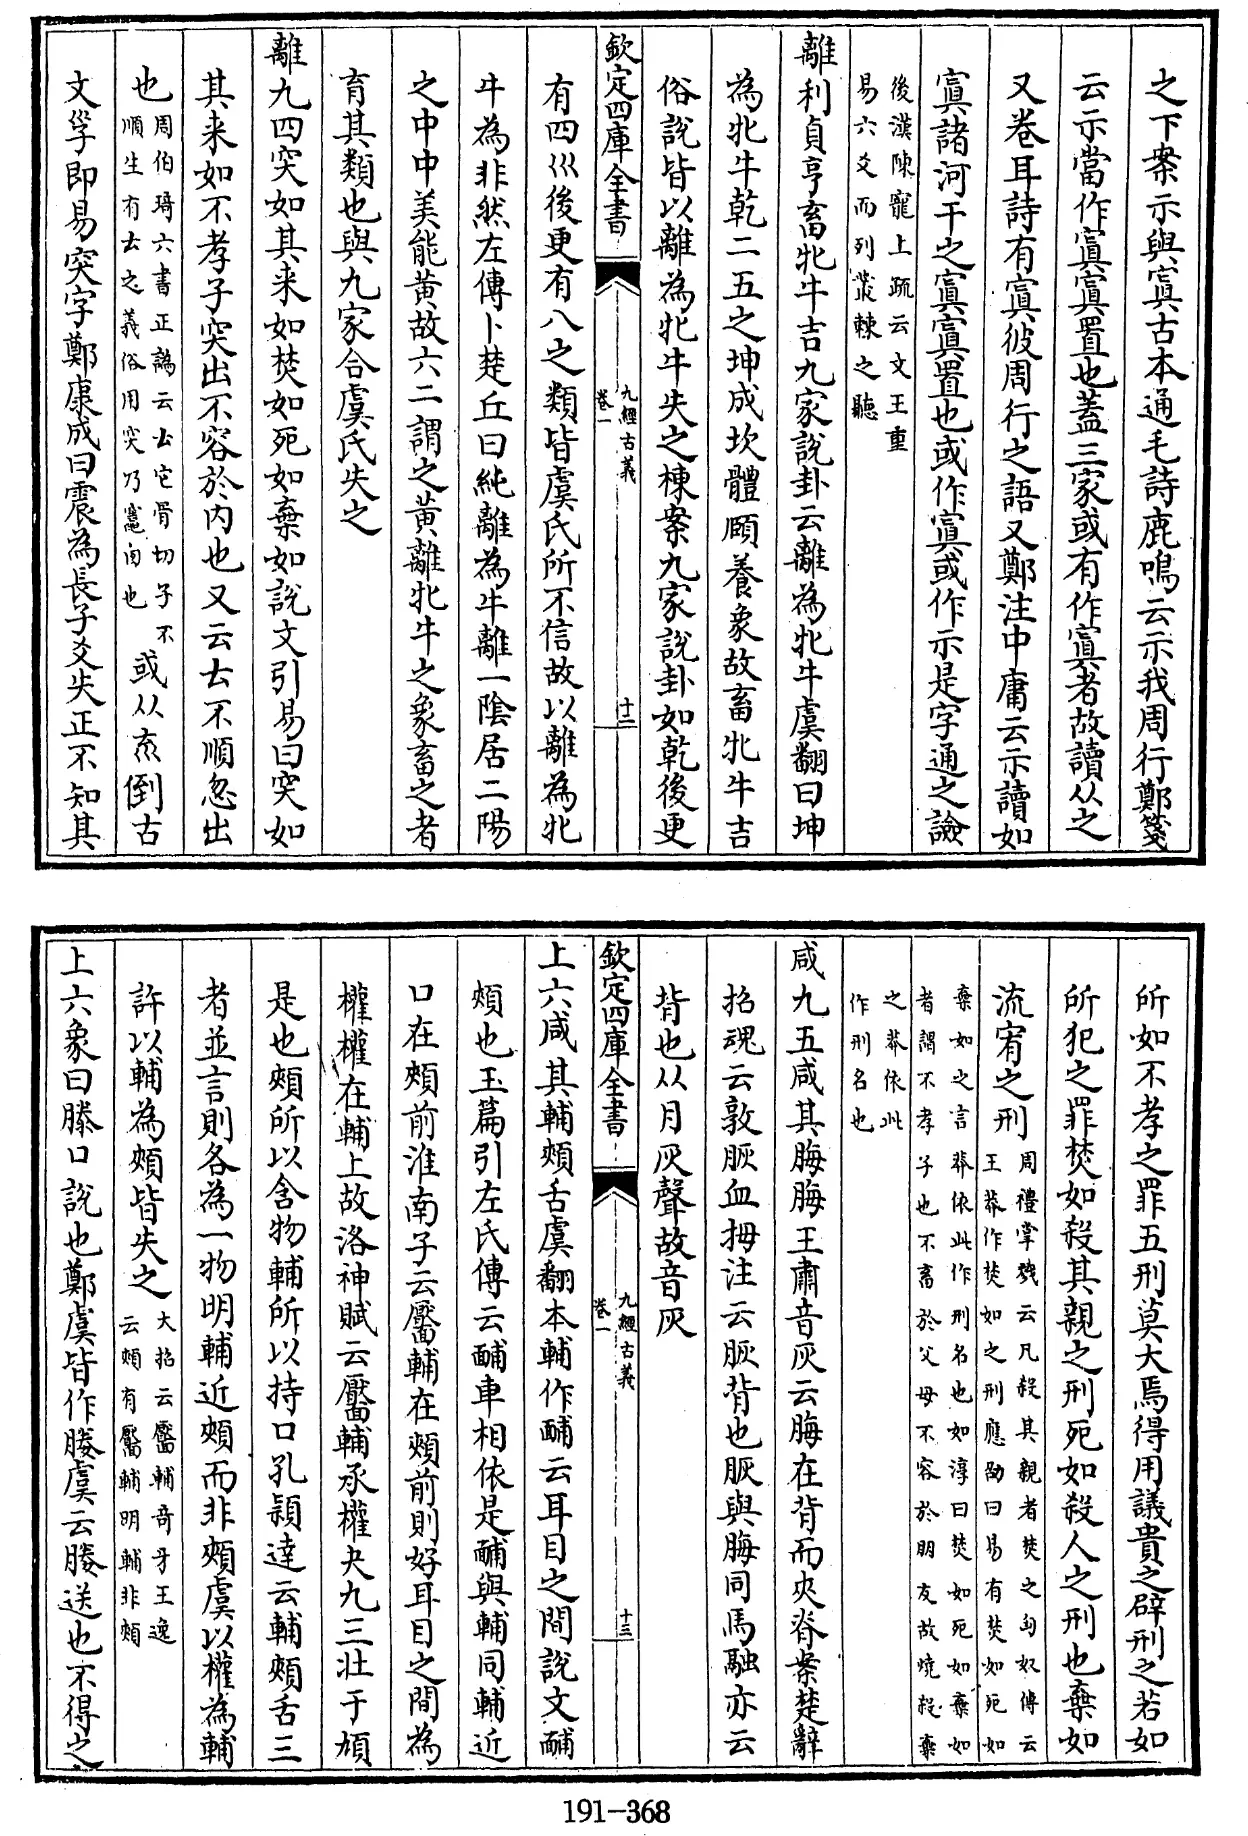 之下案示與寘古本通毛詩鹿鳴云示我周行鄭箋
云示當作寘寘置也蓋三家或有作寘者故讀從之
又卷耳詩有寘彼周行之語又鄭注中庸云示讀如
寘諸河干之寘寘置也或作寘或作示是字通之證
後漢陳寵上疏云文王重
易六爻而列叢棘之聽
離利貞亨畜牝牛吉九家說卦云離為牝牛虞翻曰坤
為牝牛乾二五之坤成坎體頤養象故畜牝牛吉
俗說皆以離為牝牛失之棟案九家說卦如乾後更
欽定四庫全書
九經古義
卷一
十二
有四巛後更有八之類皆虞氏所不信故以離為牝
牛為非然左傳卜楚丘曰純離為牛離一陰居二陽
之中中美能黃故六二謂之黃離牝牛之象畜之者
育其類也與九家合虞氏失之
離九四突如其来如焚如死如棄如說文引易曰突如
其来如不孝子突出不容於内也又云𠫓不順忽出
也周伯琦六書正譌云𠫓它骨切子不
順生有𠫓之義俗用突乃竈囱也
或从𠫓倒古
文孚即易突字鄭康成曰震為長子爻失正不知其
所如不孝之罪五刑莫大焉得用議貴之辟刑之若如
所犯之罪焚如殺其親之刑死如殺人之刑也棄如
流宥之刑周禮掌戮云凡殺其親者焚之匈奴傳云
王莽作焚如之刑應劭曰易有焚如死如
棄如之言莽依此作刑名也如淳曰焚如死如棄如
者謂不孝子也不畜於父母不容於朋友故燒殺棄
之莽依此
作刑名也
咸九五咸其脢脢王肅音灰云脢在背而夾脊案楚辭
招魂云敦脄血拇注云脄背也脄與脢同馬融亦云
背也从月灰聲故音灰
欽定四庫全書
九經古義
卷一
十三
上六咸其輔頰舌虞翻本輔作酺云耳目之間說文酺
頰也玉篇引左氏傳云酺車相依是酺與輔同輔近
口在頰前淮南子云靨輔在頰前則好耳目之間為
權權在輔上故洛神賦云靨輔承權夬九三壯于頄
是也頰所以含物輔所以持口孔穎達云輔頰舌三
者並言則各為一物明輔近頰而非頰虞以權為輔
許以輔為頰皆失之大招云靨輔奇牙王逸
云頰有靨輔明輔非頰
上六象曰滕口說也鄭虞皆作媵虞云媵送也不得之
191-368